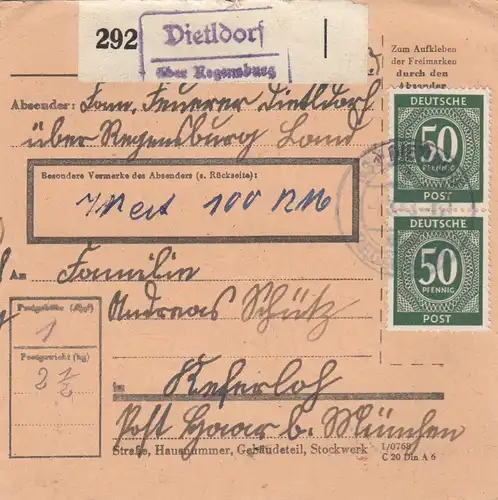 292 Dietldorf
über Regensburg
Zum Aufkleben
der Freimarken
durch den
Absender
Absender: Feuerer Dietldorf
über Regensburg Land
Besondere Vermerke des Absenders (s. Rückseite):
Wert 100 RM
DEUTSCHE
50
PFENNIG
POST
DEUTSCHE
50
PFENNIG
POST
An Familie
Andreas Schütz
1
Postgewicht (kg)
2 1/2
in Keferloh
Post Haar b. München
Straße, Hausnummer, Gebäudeteil, Stockwerk
I/0768
C 20 Din A 6